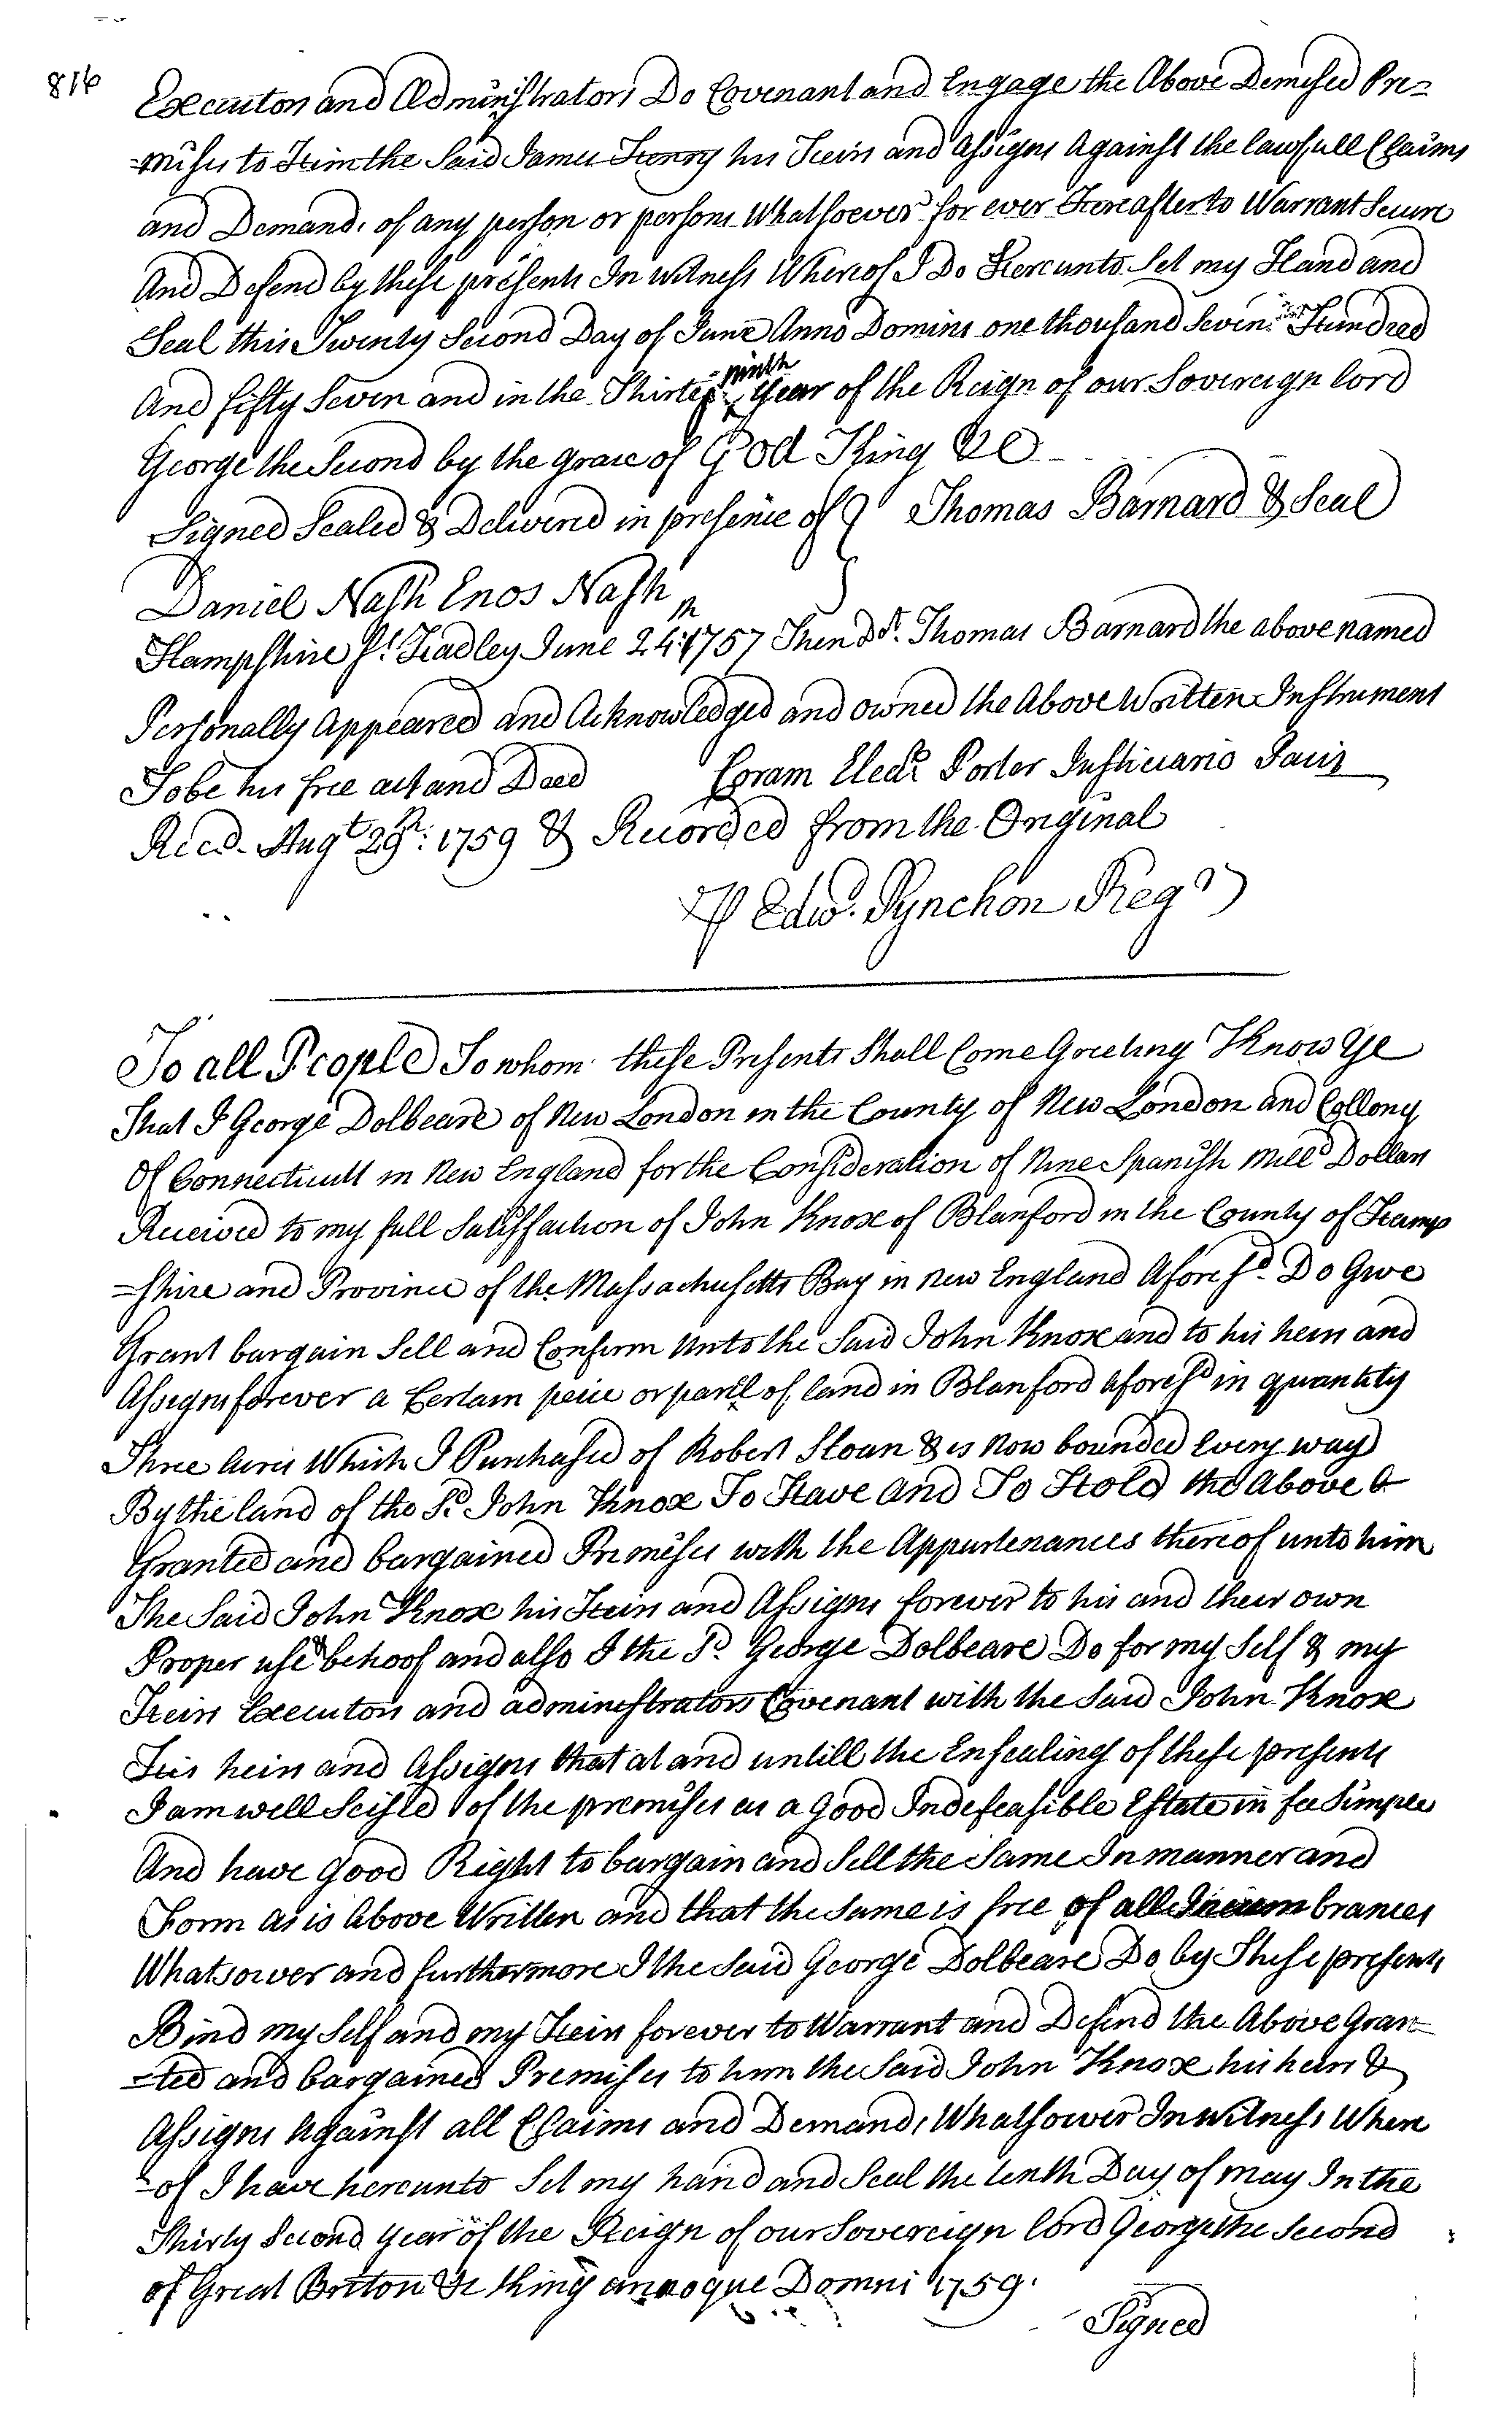 816
Executors and Administrators Do Covenant and Engage the Above Demised Pre=
=mises to Him the Said James Henry his Heirs and Assigns Against the lawfull Claims
and Demands of any person or persons Whatsoever for ever Hereafter to Warrant Secure
And Defend by these presents In witness Whereof I Do Hereunto Set my Hand and
Seal this Twenty Second Day of June Anno Domini one thousand Seven Hundred
And fifty Seven and in the Thirty ninth Year of the Reign of our Sovereign lord
George the Second by the grace of God King &c
Signed Sealed & Delivered in presence of } Thomas Barnard & Seal
Daniel Nash Enos Nash
Hampshire Ss. Hadley June 24th 1757 Then Dr. Thomas Barnard the above named
Personally Appeared and Acknowledged and owned the Above Written Instrument
To be his free act and Deed Coram Eleazr Porter Justiciario Pacis
Recd. Augt 29th: 1759 & Recorded from the Original
P Edwd. Pynchon Regr
To all People To whom these Presents Shall Come Greeting Know Ye
That I George Dolbeare of New London in the County of New London and Collony
Of Connecticutt in New England for the Consideration of Nine Spanish Mill'd Dollars
Received to my full Satisfaction of John Knox of Blanford in the County of Hamp
=shire and Province of the Massachusetts Bay in New England Aforesd. Do Give
Grant bargain Sell and Confirm unto the Said John Knox and to his heirs and
Assigns forever a Certain peice or parcl of land in Blanford aforesd in quantity
Three Acres Which I Purchased of Robert Sloan & is Now bounded Every way
By the land of the Sd. John Knox To Have And To Hold the Above &
Granted and bargained Premises with the Appurtenances thereof unto him
The Said John Knox his Heirs and Assigns forever to his and their own
Proper use & behoof and also I the Sd. George Dolbeare Do for my Self & my
Heirs Executors and administrators Covenant with the Said John Knox
His heirs and Assigns that at and untill the Ensealing of these presents
I am well Seised of the premises as a Good Indefeasible Estate in fee Simple
And have Good Right to bargain and Sell the Same In manner and
Form as is Above Written and that the Same is free of all Incumbrances
Whatsower and furthermore I the Said George Dolbeare Do by These presents
Bind my Self and my Heirs forever to Warrant and Defend the Above Gran=
=ted and bargained Premises to him the Said John Knox his heirs &
Assigns Against all Claims and Demands Whatsower In witness Where
=of I have hereunto Set my hand and Seal the tenth Day of May In the
Thirty Second Year of the Reign of our Sovereign lord George the Second
of Great Briton &c King annoque Domni 1759.
Signed